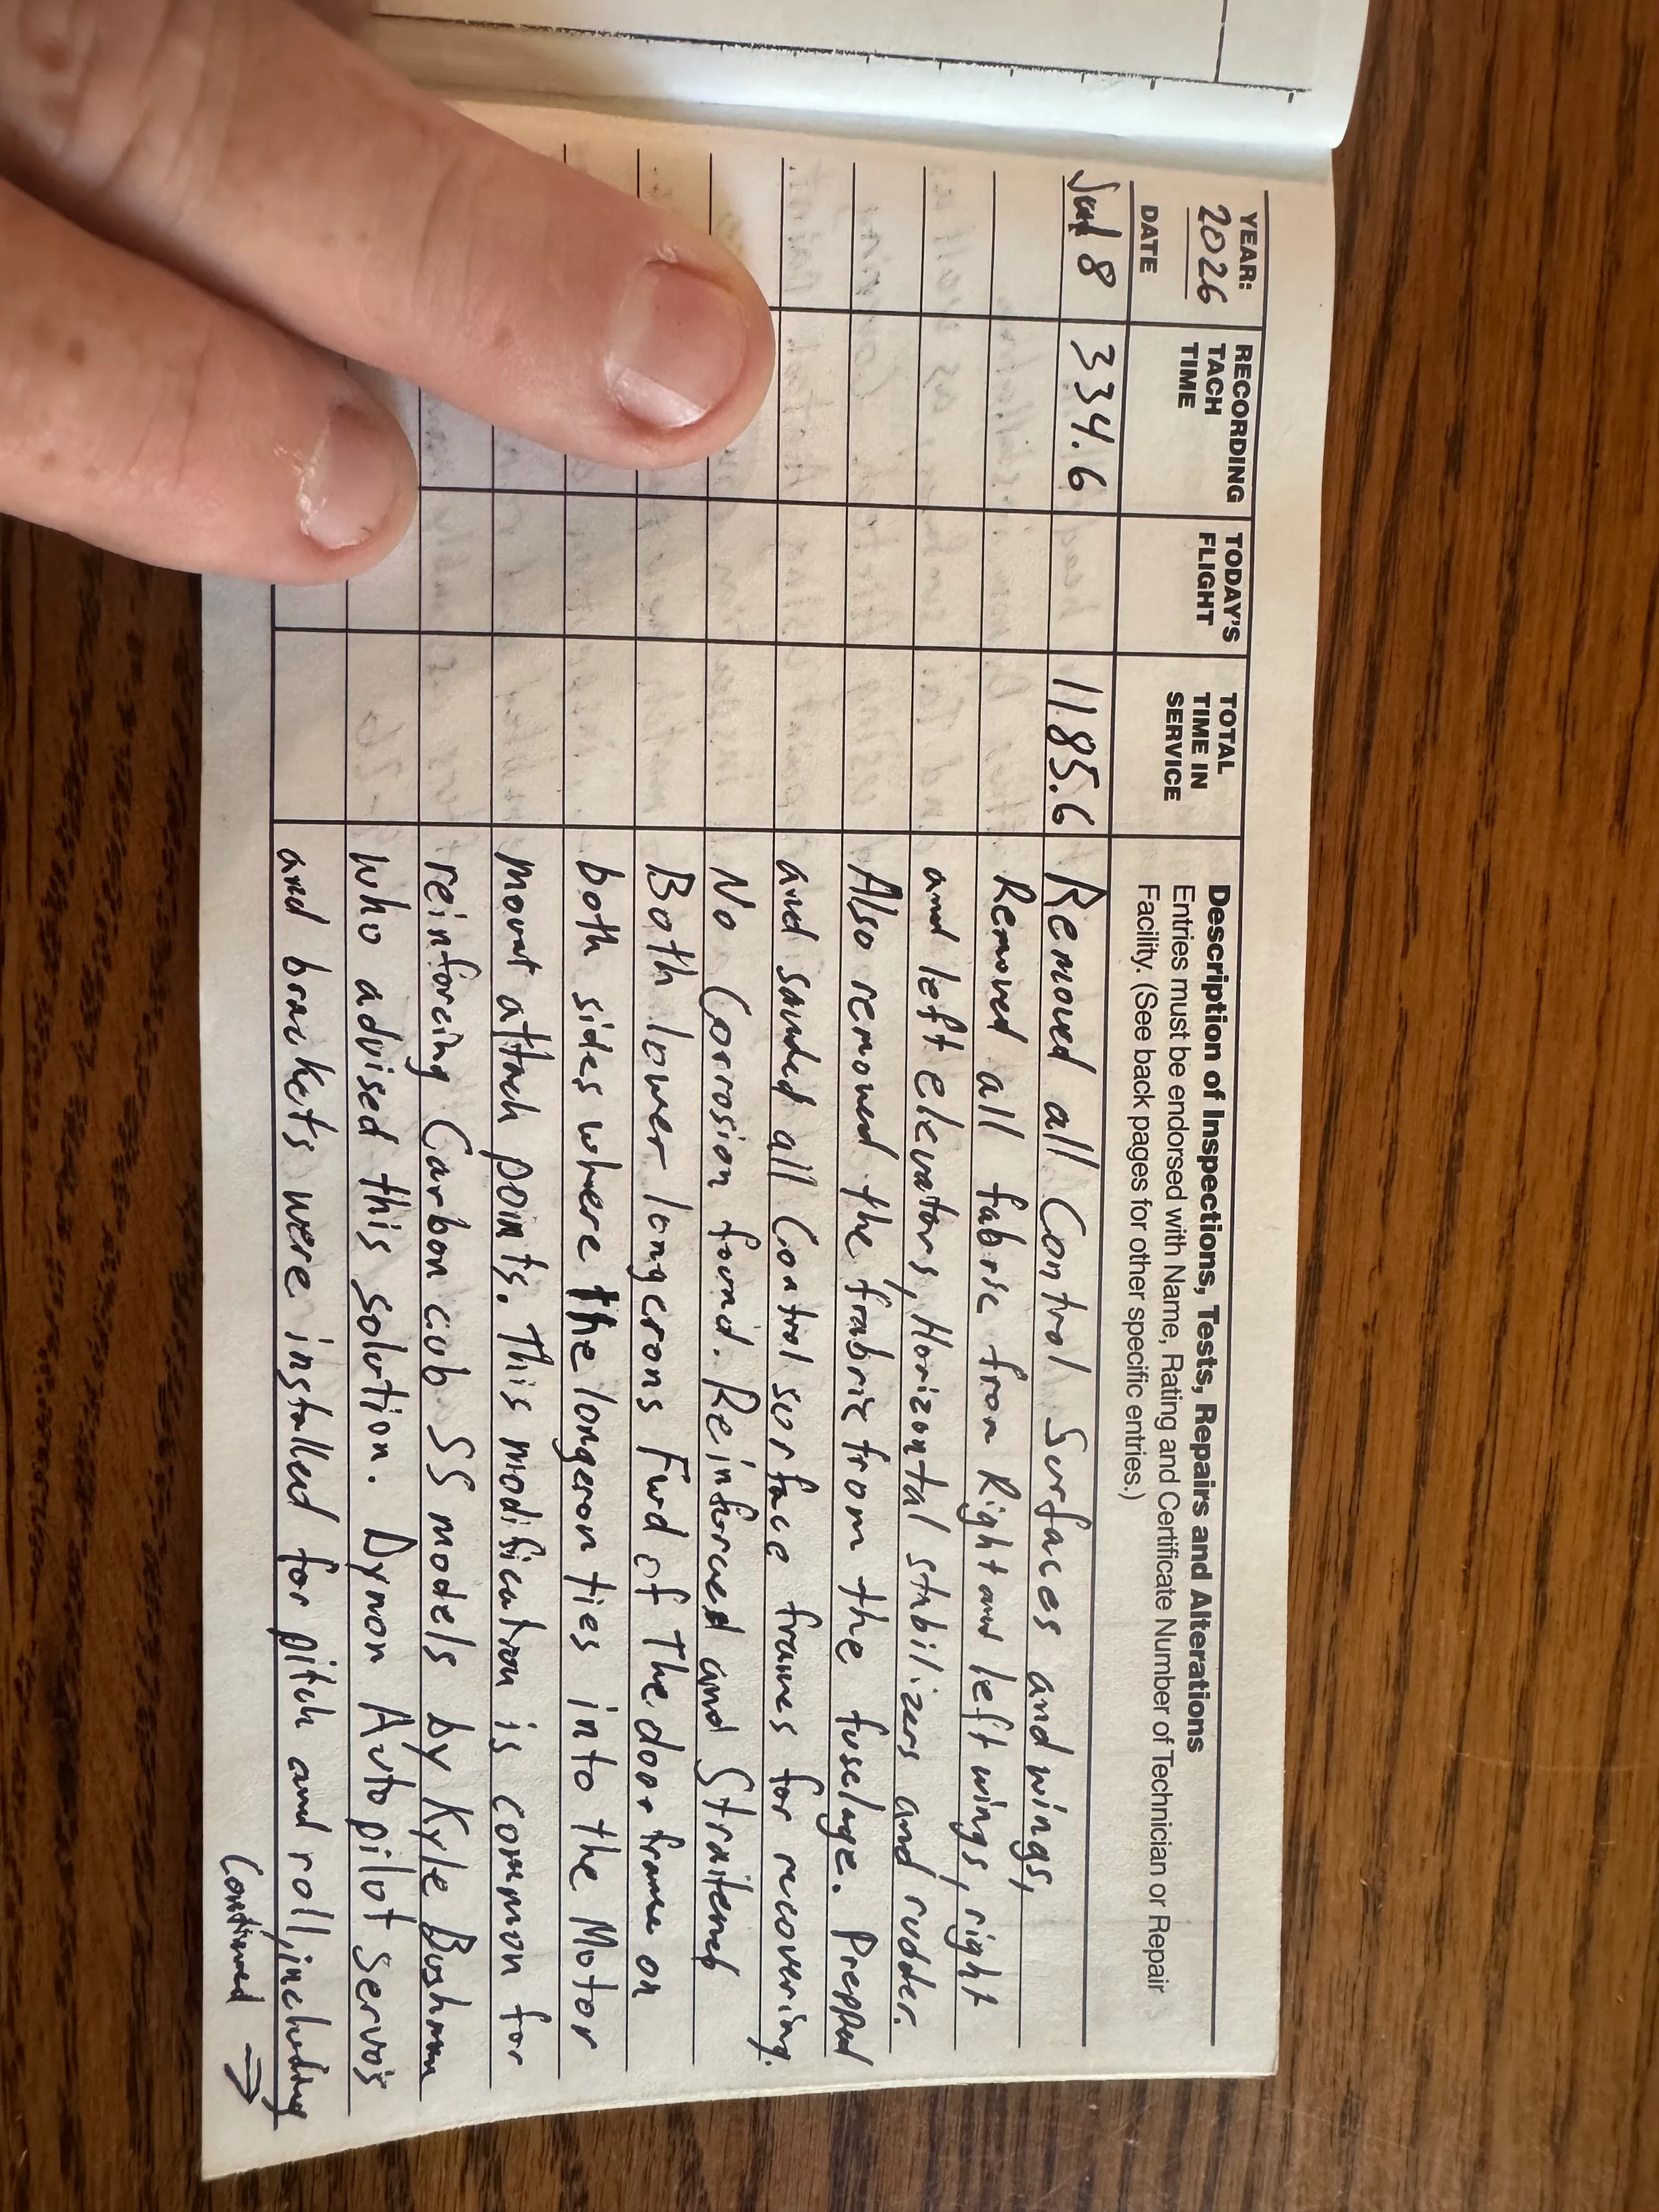 YEAR: 2026
RECORDING TACH TIME
TODAY'S FLIGHT
TOTAL TIME IN SERVICE
Description of Inspections, Tests, Repairs and Alterations
Entries must be endorsed with Name, Rating and Certificate Number of Technician or Repair
Facility. (See back pages for other specific entries.)
DATE
8 334.6 1185.6 Removed all Control Surfaces and wings,
Removed all fabric from Right and left wings, right
and left elevators, Horizontal stabilizers and rudder.
Also removed the frabric from the fuselage. Prepped
and sanded all Control surface frames for recovering.
No Corrosion found. Reinforced and Straitened
Both lower longerons Fwd of The door frame on
both sides where the longeron ties into the Motor
mount attach points. This modification is common for
reinforcing Carbon cub SS models by Kyle Bushman
who advised this solution. Dynon Autopilot servo's
and brackets were installed for pitch and roll, including
Continued ⇒